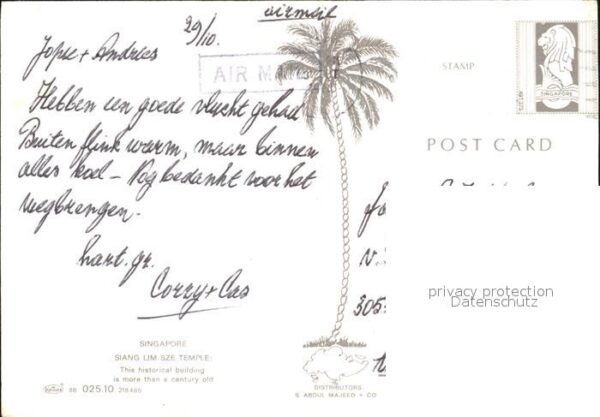 airmail
29/10.
Jopie + Andries
AIR MAIL
Hebben een goede vlucht gehad
Buiten flink warm, maar binnen
alles koel – Nog bedankt voor het
wegbrengen.
hart. gr.
Corry + Cas
STAMP
SINGAPORE
POST CARD
305
privacy protection
Datenschutz
SINGAPORE
SIANG LIM SZE TEMPLE:
This historical building
is more than a century old
BB 025.10 218486
DISTRIBUTORS
S ABDUL MAJEED + CO